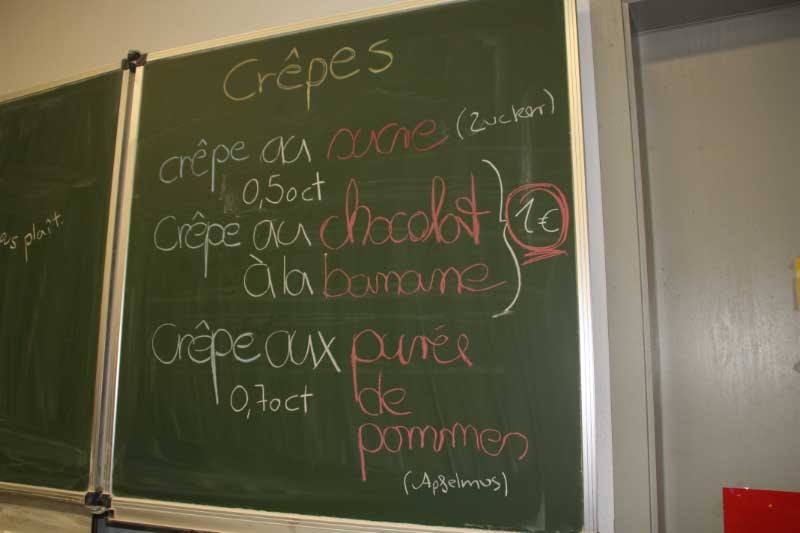 Crêpes
crêpe au sucre (Zucker)
0,50ct
Crêpe au chocolat
à la banane
1€
Crêpe aux purée
0,70ct
de
pommes
(Apfelmus)
plaît.